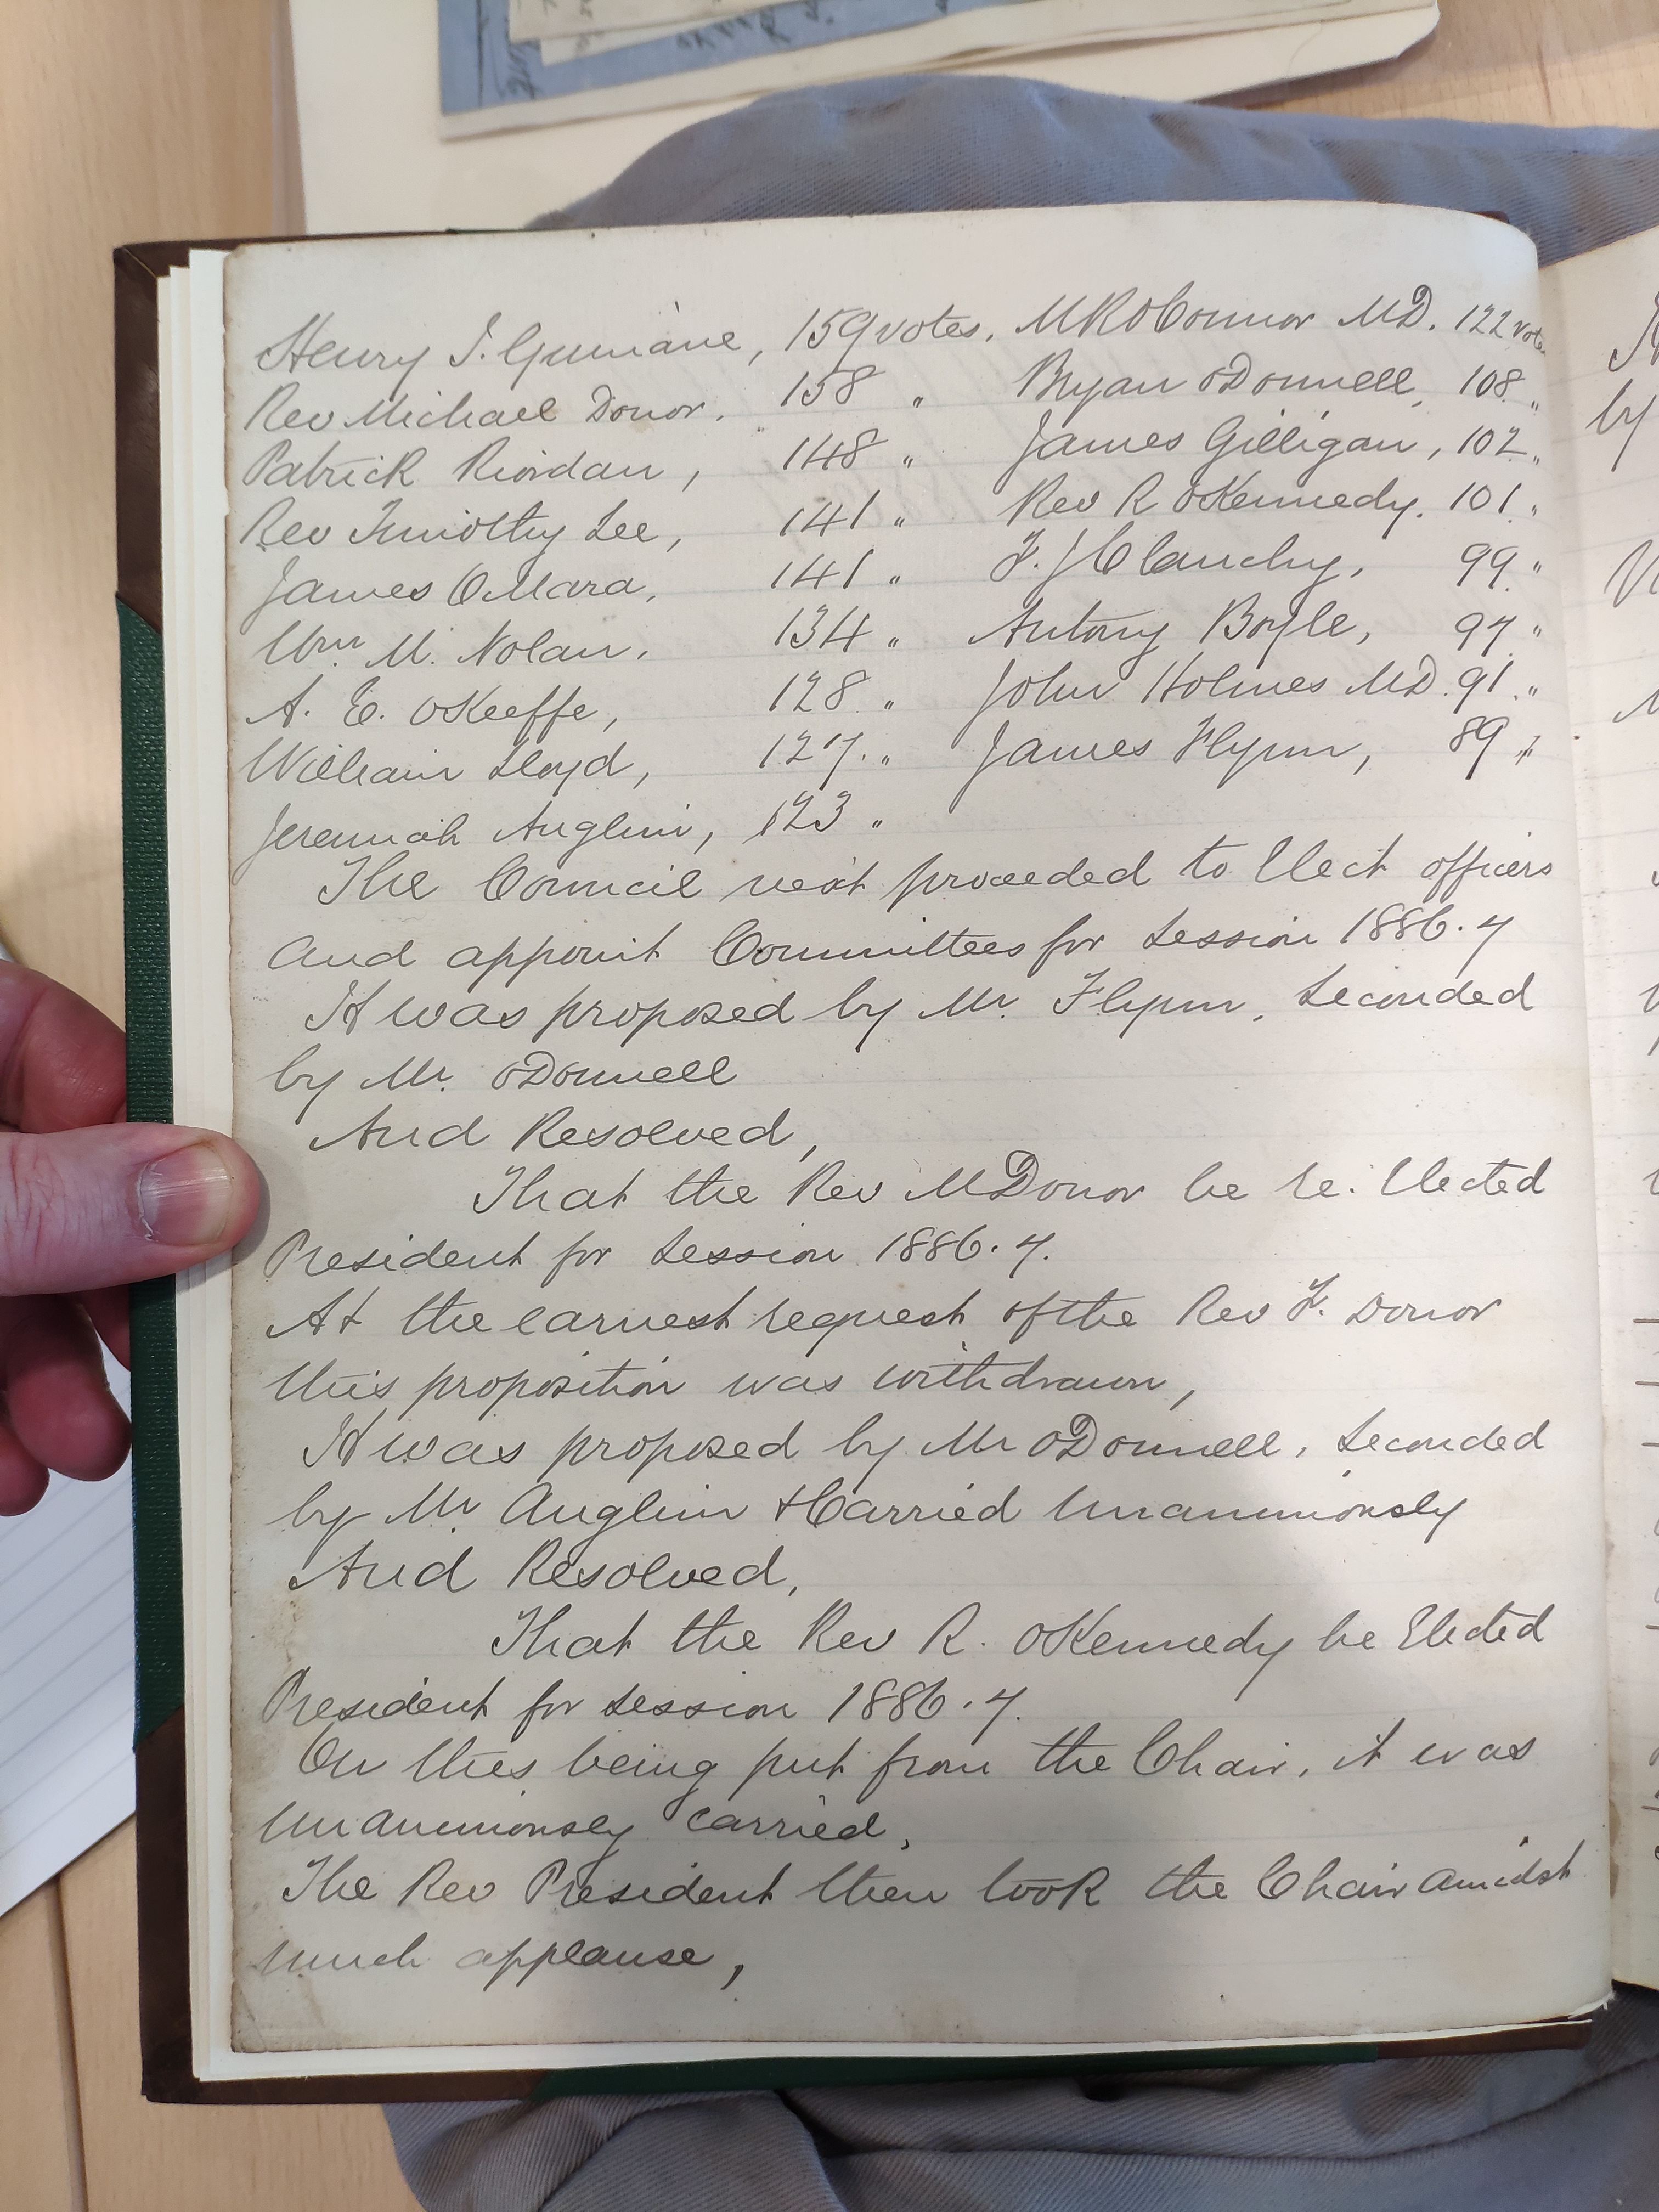 Henry J. Guinane, 159 votes. M R OConnor MD. 122 votes
Rev Michael Donor. 158 " Bryan ODonnell, 108 "
Patrick Riordan, 148 " James Gilligan, 102 "
Rev Timothy Lee, 141 " Rev R OKennedy. 101 "
James OMara. 141 " F. J Clanchy, 99 "
Wm. M. Nolan. 134 " Antony Boyle, 97 "
A. E. OKeeffe, 128 " John Holmes MD. 91 "
William Lloyd, 127. " James Flynn, 89 "
Jeremiah Anglim, 123 "
The Council next proceeded to Elect officers
and appoint Committees for Session 1886.7
It was proposed by Mr. Flynn, Seconded
by Mr. ODonnell
And Resolved,
That the Rev M Donor be re.Elected
President for Session 1886.7.
At the earnest request of the Rev F. Donor
this proposition was withdrawn,
It was proposed by Mr ODonnell, Seconded
by Mr. Anglim & Carried Unanimously
And Resolved,
That the Rev R. OKennedy be Elected
President for Session 1886.7.
On this being put from the Chair, it was
Unanimously carried,
The Rev President then took the Chair amidst
much applause,
by